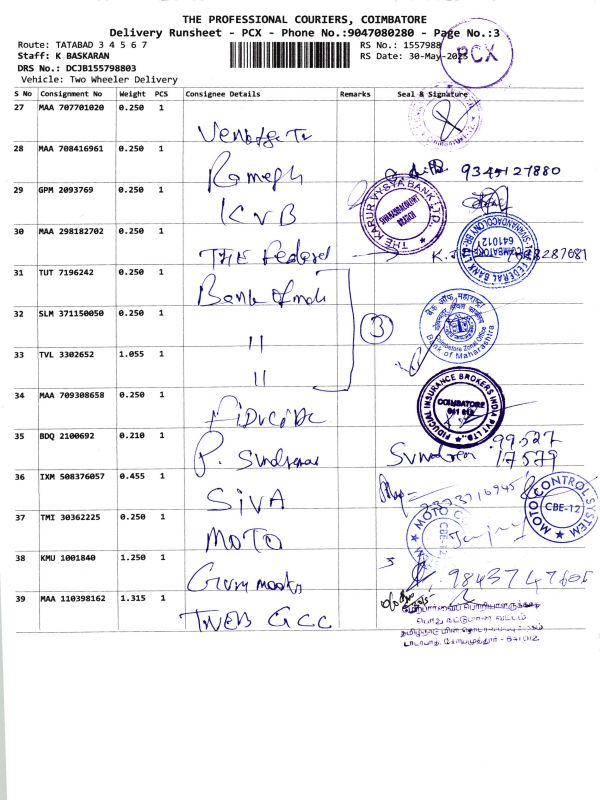 THE PROFESSIONAL COURIERS, COIMBATORE
Delivery Runsheet - PCX - Phone No.:9047080280 - Page No.:3
Route: TATABAD 3 4 5 6 7
RS No.: 1557988
Staff: K BASKARAN
RS Date: 30-May-2025
DRS No.: DCJB155798803
Vehicle: Two Wheeler Delivery
PCX
S No Consignment No Weight PCS Consignee Details Remarks Seal & Signature
27 MAA 707701020 0.250 1
28 MAA 708416961 0.250 1 Ramesh 9345127880
29 GPM 2093769 0.250 1 KVB
THE KARUR VYSYA BANK LTD.,
SIVANANDACOLONY
BRANCH
30 MAA 298182702 0.250 1 THE Federal
FEDERAL BANK LTD
SIVANANDACOLONY BR
COIMBATORE
641012
31 TUT 7196242 0.250 1 Bank of mah
32 SLM 371150050 0.250 1 11
3
बैंक ऑफ महाराष्ट्र
Coimbatore Zonal Office
Bank of Maharashtra
33 TVL 3302652 1.055 1 11
34 MAA 709308658 0.250 1
FIDUCIAL INSURANCE BROKERS INDIA PVT LTD.,
COIMBATORE
641 012
35 BDQ 2100692 0.210 1 P. Sundaresan
99527
17579
36 IXM 508376057 0.455 1 SIVA
37 TMI 30362225 0.250 1 MOTO
MOTO CONTROL SYSTEM
CBE-12
MOTO CONTROL
CBE-12
38 KMU 1001840 1.250 1
39 MAA 110398162 1.315 1 TNEB GCC